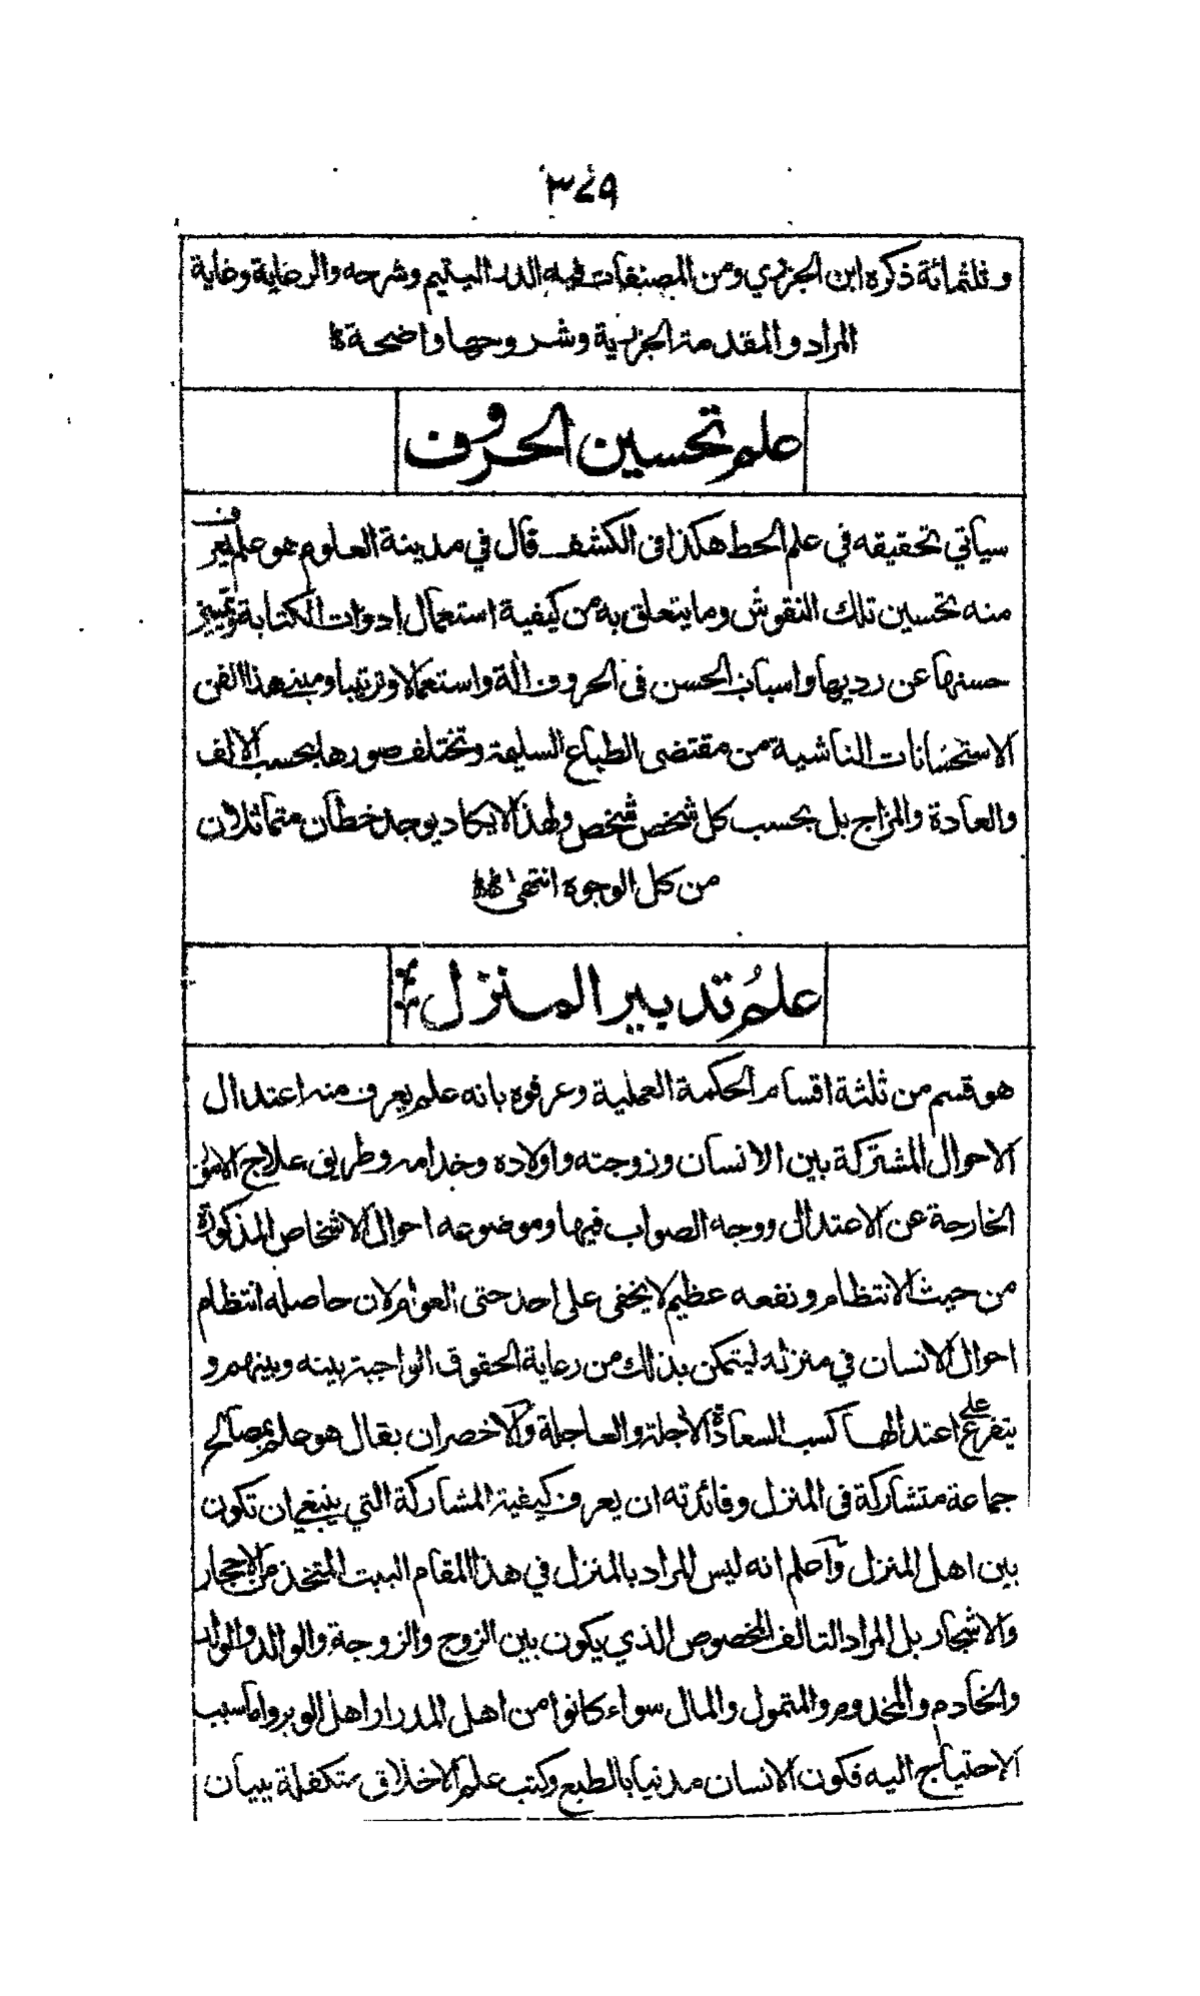 ٣٤٩
وثلثمائة ذكره ابن الجزري ومن المصنفات فيه الدر اليتيم وشرحه والرعاية وغاية
المراد والمقدمة الجزرية وشروحها واضحة
علم تحسين الحروف
سيأتي تحقيقه في علم الخط هكذا في الكشف قال في مدينة العلوم هو علم يعرف
منه تحسين تلك النقوش وما يتعلق به من كيفية استعمال ادوات الكتابة وتمييز
حسنها عن رديها واسباب الحسن في الحروف الة واستعمالا وترتيبا ومبنى هذا الفن
الاستحسانات الناشية من مقتضى الطباع السليمة وتختلف صورها بحسب الالف
والعادة والمزاج بل بحسب كل شخص شخص ولهذا لا يكاد يوجد خطان متماثلان
من كل الوجوه انتهى
علم تدبير المنزل
هو قسم من ثلثة اقسام الحكمة العملية وعرفوه بانه علم يعرف منه اعتدال
الاحوال المشتركة بين الانسان وزوجته واولاده وخدامه وطريق علاج الامور
الخارجة عن الاعتدال ووجه الصواب فيها وموضوعه احوال الاشخاص المذكورة
من حيث الانتظام ونفعه عظيم لا يخفى على احد حتى العوام لان حاصله انتظام
احوال الانسان في منزله ليتمكن بذلك من رعاية الحقوق الواجبة بينه وبينهم و
يتفرع على اعتدالها كسب السعادة الاجلة والعاجلة والاخصر ان يقال هو علم بمصالح
جماعة متشاركة في المنزل وفائدته ان يعرف كيفية المشاركة التي ينبغي ان تكون
بين اهل المنزل واعلم انه ليس المراد بالمنزل في هذا المقام البيت المتخذ من الاحجار
والاشجار بل المراد التالف المخصوص الذي يكون بين الزوج والزوجة والوالد والولد
والخادم والمخدوم والمتمول والمال سواء كانوا من اهل المدر او اهل الوبر واما سبب
الاحتياج اليه فكون الانسان مدنيا بالطبع وكتب علم الاخلاق متكفلة ببيان